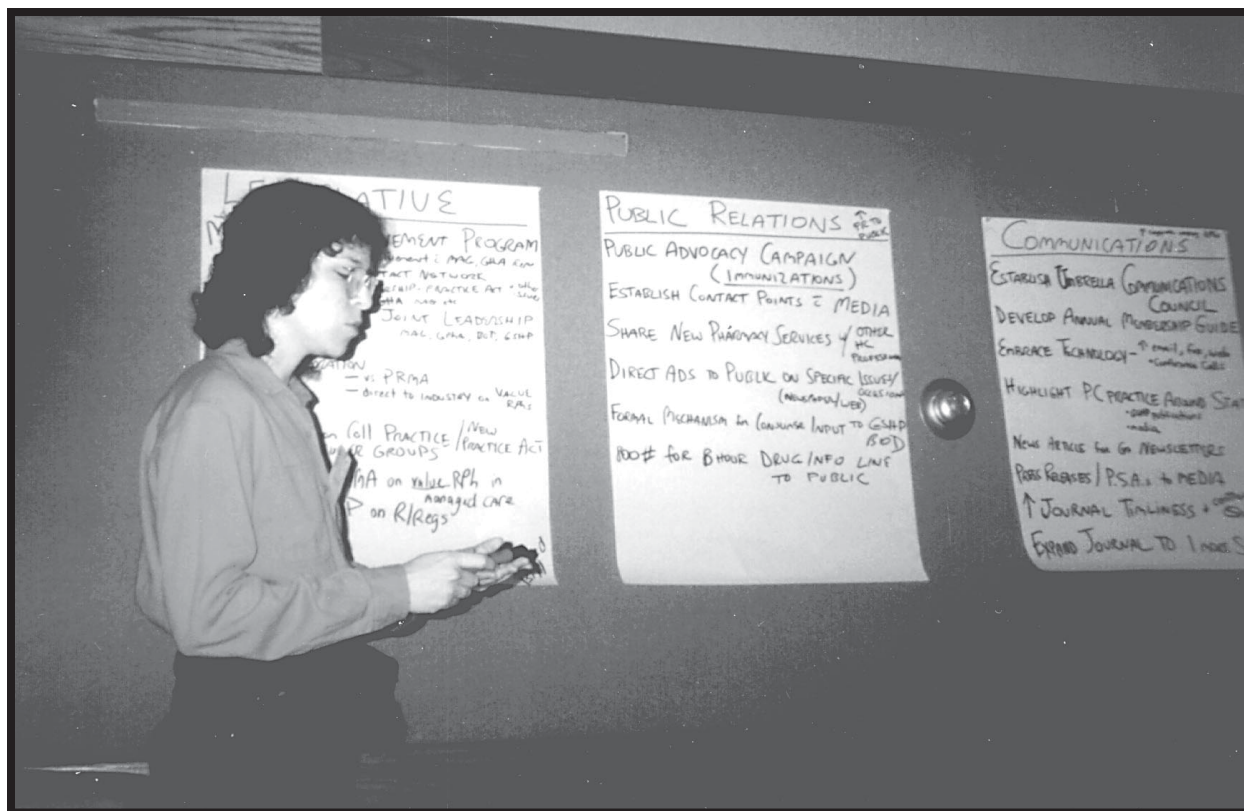 LEGISLATIVE
VEMENT PROGRAM
MAG, GHA
TACT NETWORK
PRACTICE ACT
JOINT LEADERSHIP
MAG, GPHA, BOP, GSHP
— vs PRMA
— direct to INDUSTRY on VALUE
RPhs
Coll PRACTICE / NEW
PRACTICE ACT
GROUPS
MA on value RPh in
managed care
P on R/Regs
PUBLIC RELATIONS
↑ PR TO
PUBLIC
PUBLIC ADVOCACY CAMPAIGN
(IMMUNIZATIONS)
ESTABLISH CONTACT POINTS c̄ MEDIA
SHARE NEW PHARMACY SERVICES w/ OTHER
HC
PROFESSIONALS
DIRECT ADS TO PUBLIC ON SPECIFIC ISSUES/
(NEWSPAPER/WEB)
FORMAL MECHANISM for CONSUMER INPUT TO GSHP
BOD
800# FOR 8 HOUR DRUG/INFO LINE
TO PUBLIC
COMMUNICATIONS
ESTABLISH UMBRELLA COMMUNICATIONS
COUNCIL
DEVELOP ANNUAL MEMBERSHIP GUIDE
EMBRACE TECHNOLOGY - ↑ email, fax, web
• Conference Calls
HIGHLIGHT PC PRACTICE AROUND STAT
publications
• media
NEWS ARTICLE for GA NEWSLETTERS
PRESS RELEASES / P.S.A.s to MEDIA
↑ JOURNAL TIMLINESS +
EXPAND JOURNAL TO